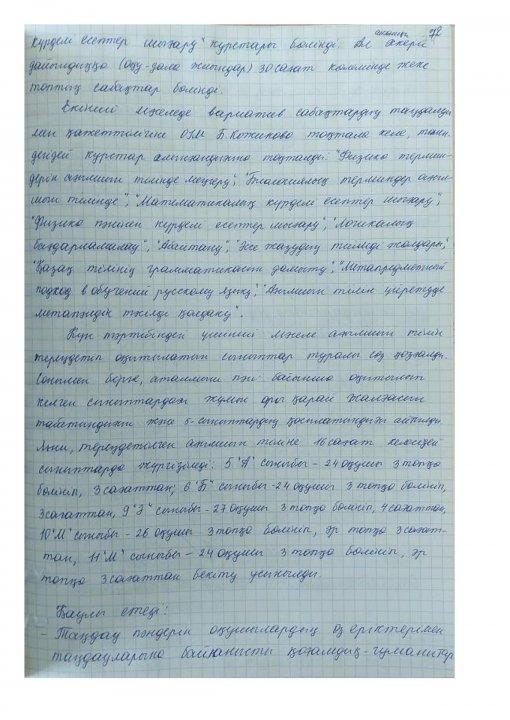 72
күрделі есептер шығару" курстары бөлінді. Ал әскери
дайындыққа (оқу-дала жиындар) 30 сағат көлемінде жеке
топтық сабақтар бөлінді.
Екінші мәселеде вариатив сабақтардың таңдалды
мен қажеттілігіне ОІМ Б.Кожикова тоқтала келе, төмен-
дегідей курстар алынғандығына тоқталды: "Физика термин-
дерін ағылшын тілінде меңгеру", "Биологиялық терминдер ағыл-
шын тілінде", "Математикалық күрделі есептер шығару",
"Физика пәнінен күрделі есептер шығару", "Логикалық
бағдарламалау", "Абайтану", "Эссе жазудың тиімді жолдары",
"Қазақ тілінің грамматикасын дамыту", "Метапредметный
подход в обучении русскому языку", "Ағылшын тілін үйретуде
метапәндік тәсілді қолдану".
Күн тәртібіндегі үшінші мәселе ағылшын тілін
тереңдетіп оқытылатын сыныптар туралы сөз қозғалды.
Сонымен бірге, аталмыш пән бойынша оқытылып
келген сыныптардағы жұмыс ары қарай жалғасын
табатындығын және 5-сыныптардың қосылатындығы айтылды.
Яғни, тереңдетілген ағылшын тіліне 16 сағат келесідей
сыныптарда жүргізіледі: 5 "А" сыныбы - 24 оқушы 3 топқа
бөлініп, 3 сағаттан; 6 "Б" сыныбы - 24 оқушы 3 топқа бөлініп,
3 сағаттан, 9 "Г" сыныбы - 27 оқушы 3 топқа бөлініп, 4 сағаттан,
10 "М" сыныбы - 26 оқушы 3 топқа бөлініп, әр топқа 3 сағат-
тан, 11 "М" сыныбы - 24 оқушы 3 топқа бөлініп, әр
топқа 3 сағаттан бекіту ұсынылды.
Қаулы етеді:
- Таңдау пәндерін оқушылардың өз еріктерімен
таңдауларына байланысты қоғамдық-гуманитар